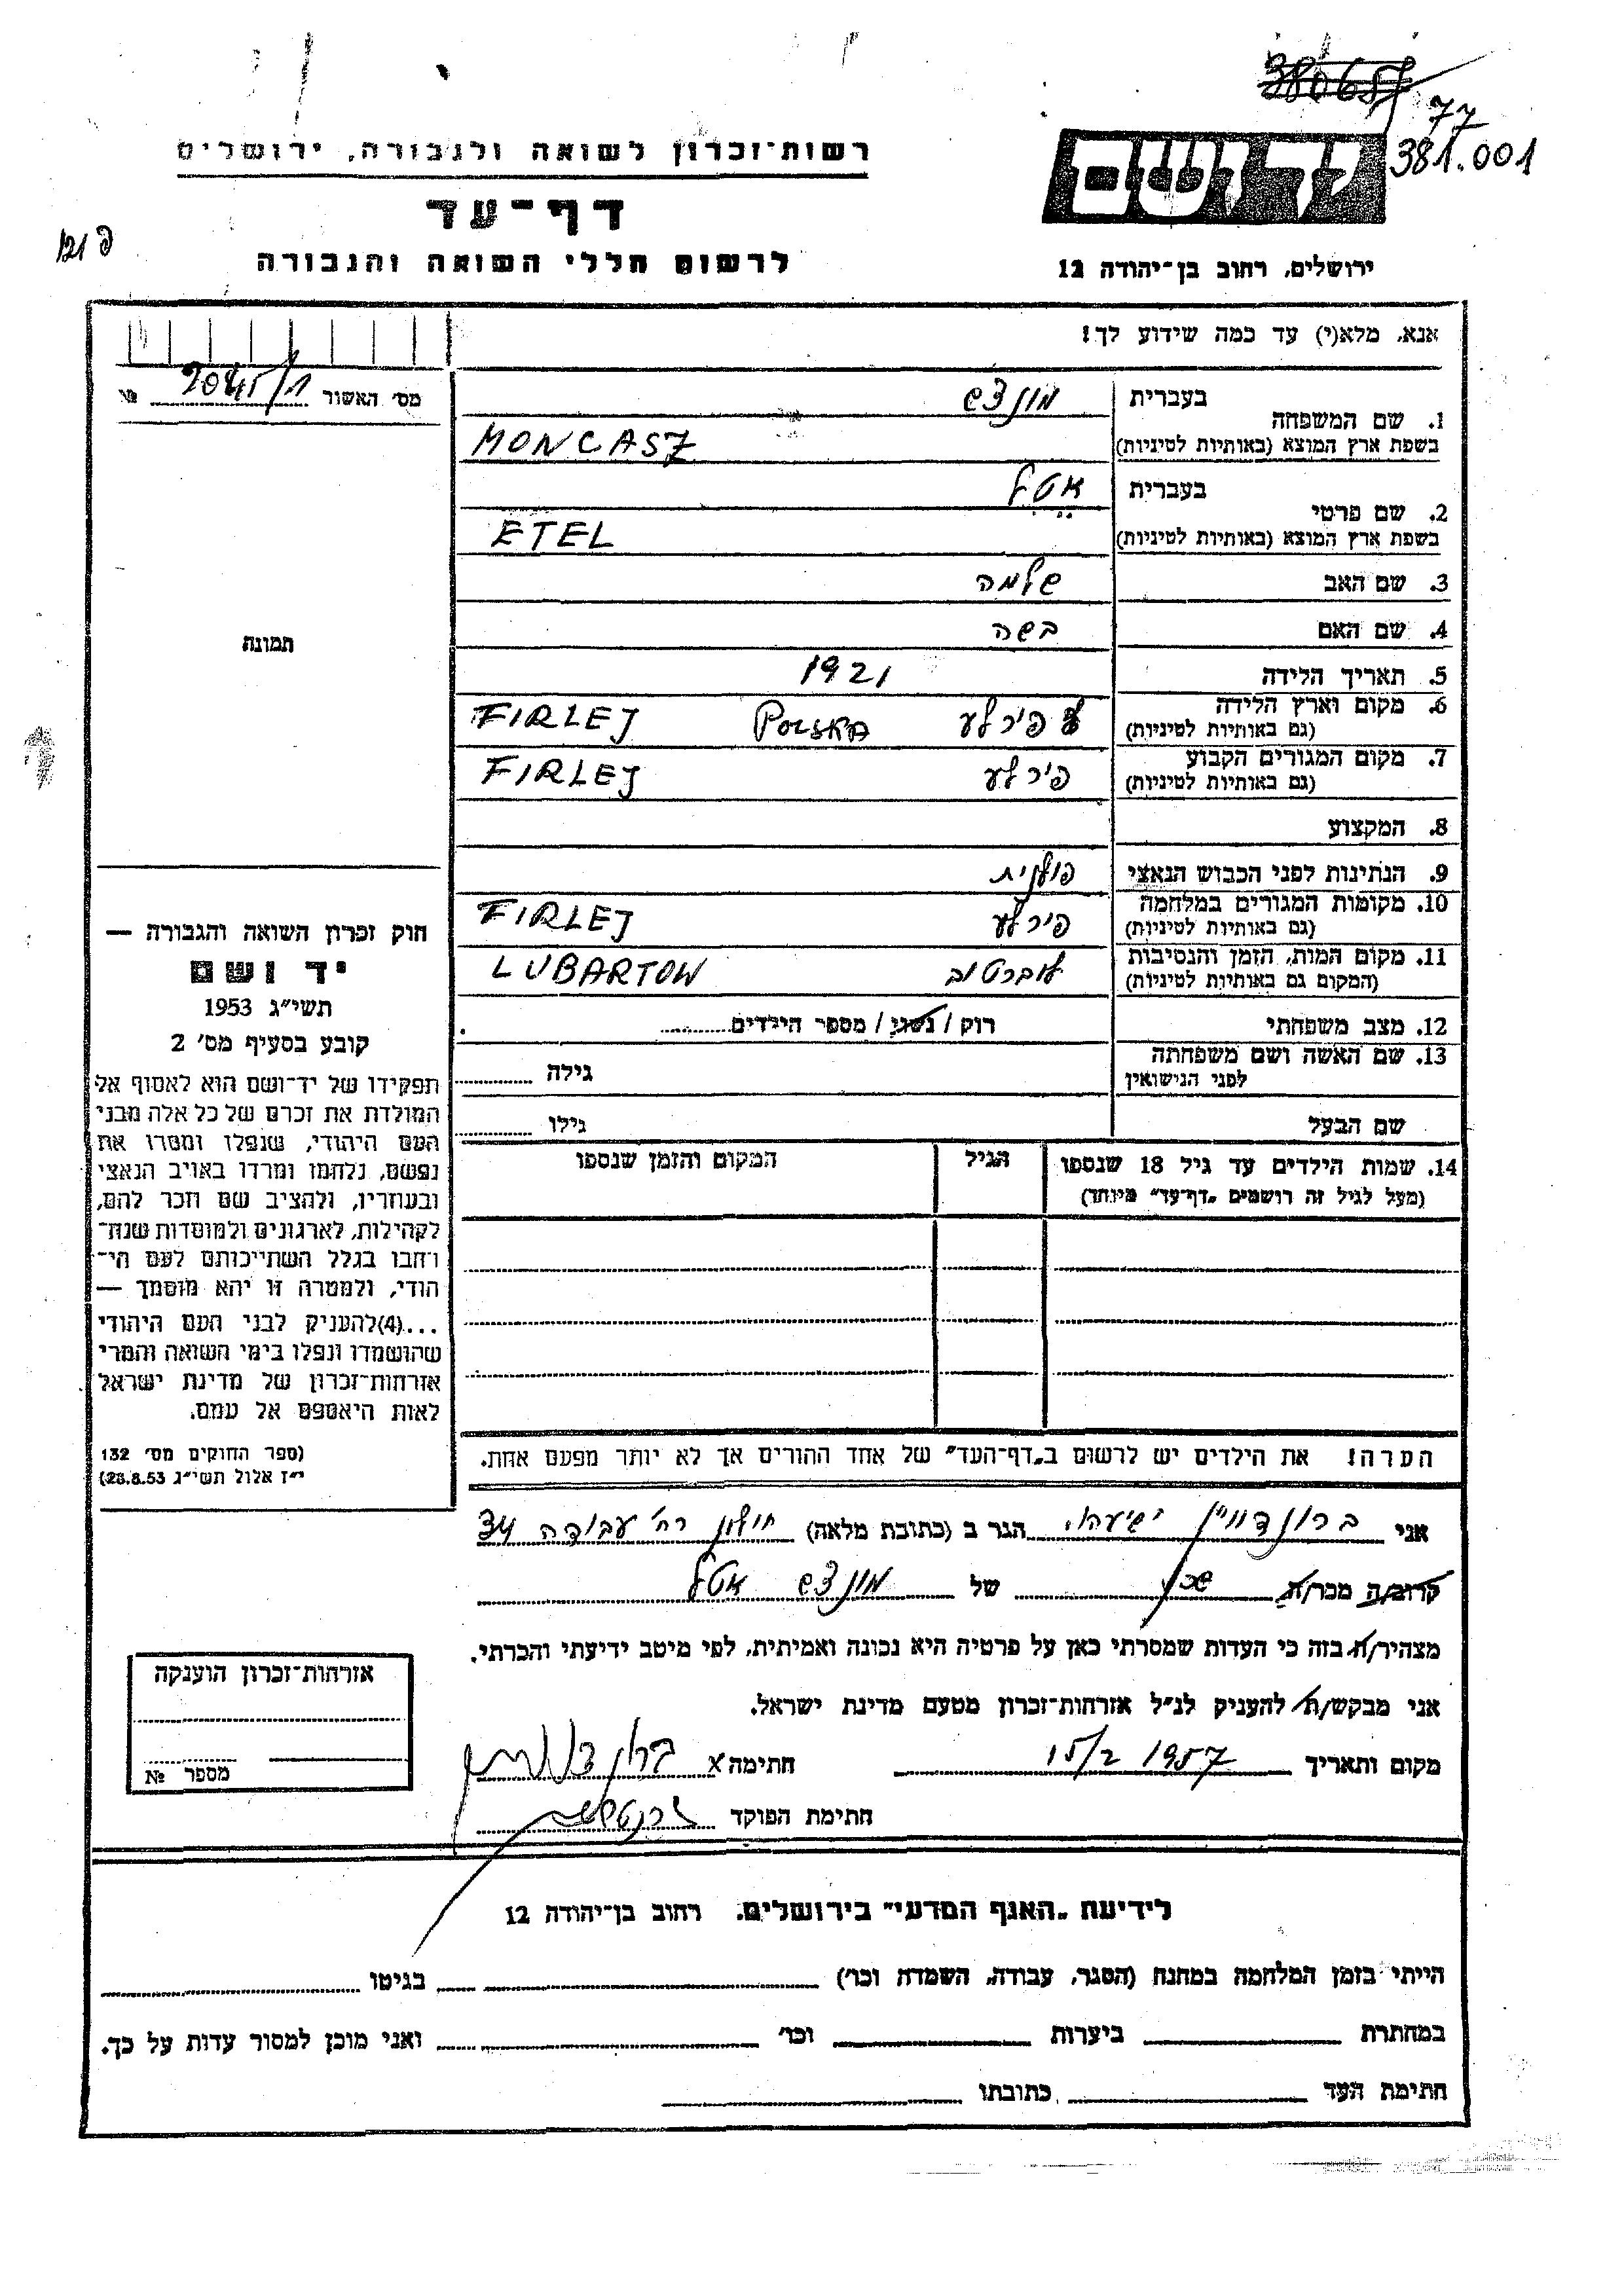 77
381.001
רשות-זכרון לשואה ולגבורה, ירושלים
יד ושם
דף-עד
לרשום חללי השואה והגבורה
ירושלים, רחוב בן-יהודה 12
אנא, מלא(י) עד כמה שידוע לך!
מס׳ האשור № 2045/1
1. שם המשפחה
בעברית מונצש
בשפת ארץ המוצא (באותיות לטיניות) MONCASZ
2. שם פרטי
בעברית אטל
בשפת ארץ המוצא (באותיות לטיניות) ETEL
3. שם האב שלמה
4. שם האם בשה
5. תאריך הלידה 1921
6. מקום וארץ הלידה (גם באותיות לטיניות) פירלע POLSKA FIRLEJ
7. מקום המגורים הקבוע (גם באותיות לטיניות) פירלע FIRLEJ
8. המקצוע
9. הנתינות לפני הכבוש הנאצי פולנית
10. מקומות המגורים במלחמה (גם באותיות לטיניות) פירלע FIRLEJ
11. מקום המות, הזמן והנסיבות (המקום גם באותיות לטיניות) לוברטוב LUBARTOW
12. מצב משפחתי רוק / נשוי / מספר הילדים
13. שם האשה ושם משפחתה לפני הנישואין גילה
שם הבעל גילו
14. שמות הילדים עד גיל 18 שנספו
(מעל לגיל זה רושמים „דף-עד" מיוחד)
הגיל
המקום והזמן שנספו
תמונה
חוק זכרון השואה והגבורה —
יד ושם
תשי״ג 1953
קובע בסעיף מס׳ 2
תפקידו של יד-ושם הוא לאסוף אל
המולדת את זכרם של כל אלה מבני
העם היהודי, שנפלו ומסרו את
נפשם, נלחמו ומרדו באויב הנאצי
ובעוזריו, ולהציב שם וזכר להם,
לקהילות, לארגונים ולמוסדות שנח־
רבו בגלל השתייכותם לעם הי־
הודי, ולמטרה זו יהא מוסמך —
...(4) להעניק לבני העם היהודי
שהושמדו ונפלו בימי השואה והמרי
אזרחות-זכרון של מדינת ישראל
לאות היאספם אל עמם.
(ספר החוקים מס׳ 132
י״ז אלול תשי״ג 28.8.53)
הערה! את הילדים יש לרשום ב„דף-העד" של אחד ההורים אך לא יותר מפעם אחת.
אני ברונדוויין ישעיהו הגר ב (כתובת מלאה) חולון רח׳ עבודה 34
קרוב/ה מכר/ה שכן של מונצש אטל
מצהיר/ה בזה כי העדות שמסרתי כאן על פרטיה היא נכונה ואמיתית, לפי מיטב ידיעתי והכרתי.
אני מבקש/ת להעניק לנ״ל אזרחות-זכרון מטעם מדינת ישראל.
מקום ותאריך 15/2 1957 חתימה x
חתימת הפוקד
אזרחות-זכרון הוענקה
מספר №
לידיעת „האגף המדעי" בירושלים, רחוב בן-יהודה 12
הייתי בזמן המלחמה במחנה (הסגר, עבודה, השמדה וכו׳) בגיטו
במחתרת ביערות וכו׳ ואני מוכן למסור עדות על כך.
חתימת העד כתובתו